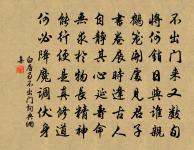 不出門來又數旬
將何銷日與誰親
鶴籠開處見君子
書卷展時逢古人
自靜其心延壽命
無求於物長精神
能行便是真修道
何必降魔調伏身
白居易不出門詞典網
集